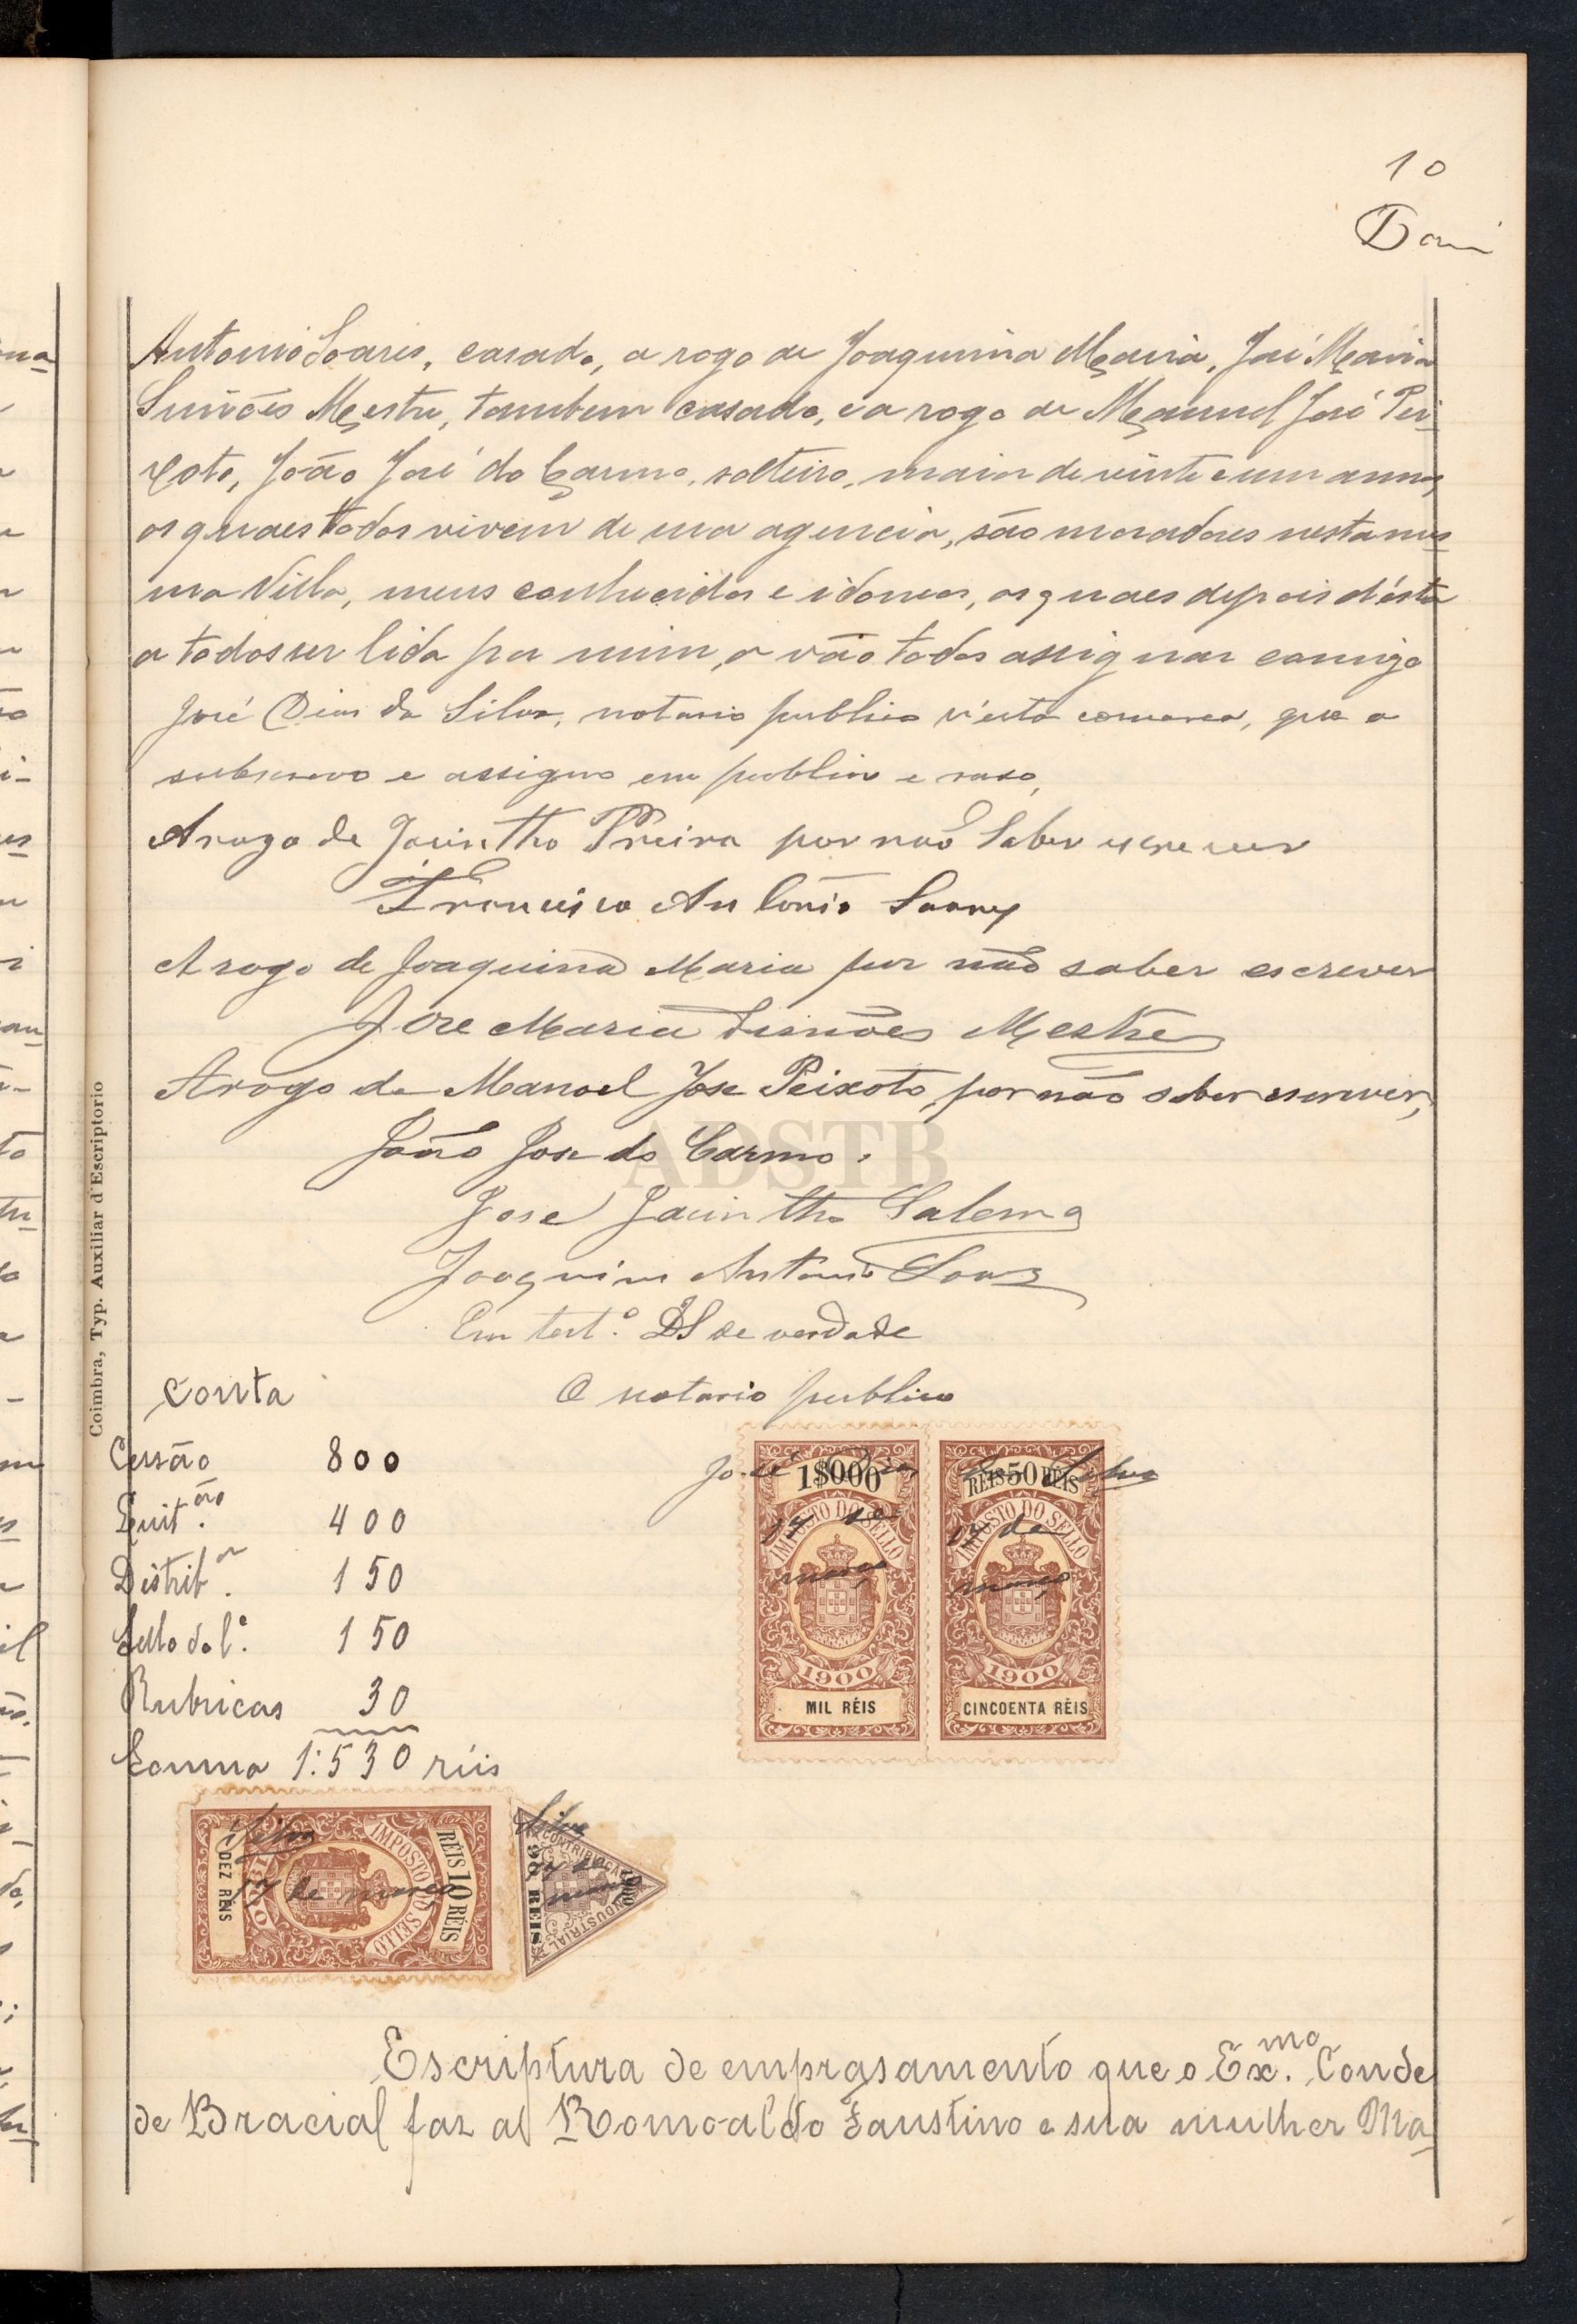 10
Antonio Soares, casado, a rogo de Joaquina Maria, José Maria
Simões Mestre, tambem casado, e a rogo de Manuel José Pei-
xoto, João José do Carmo, solteiro, maior de vinte e um annos,
os quaes todos vivem de sua agencia, são moradores nesta mes-
ma Villa, meus conhecidos e idoneos, os quaes depois d'ésta
a todos ser lida por mim, a vão todos assignar comigo
José Dias da Silva, notario publico n'esta comarca, que a
subscrevo e assigno em publico e raso,
A rogo de Jacintho Pereira por não saber escrever
Francisco Antonio Soares
A rogo de Joaquina Maria por não saber escrever
Jose Maria Simões Mestre
A rogo de Manoel Jose Peixoto, por não saber escrever,
João Jose do Carmo.
Jose Jacintho Salema
Joaquim Antonio
Em test.º DS de verdade
O notario publico
José Dias da Silva
Conta
Cessão 800
Quit.ão 400
Distrib.or 150
Sello do l.º 150
Rubricas 30
Somma 1:530 réis
1$000
IMPOSTO DO SELLO
17 de
março
1900
MIL RÉIS
RÉIS 50 RÉIS
IMPOSTO DO SELLO
17 de
março
1900
CINCOENTA RÉIS
RÉIS 10 RÉIS
IMPOSTO DO SELLO
Silva
17 de março
DEZ RÉIS
Silva
CONTRIBUIÇÃO
INDUSTRIAL
1900
90 REIS
Escriptura de emprasamento que o Ex.mo Conde
de Bracial faz a Romoaldo Faustino e sua mulher Ma-
Coimbra, Typ. Auxiliar d'Escriptorio
ADSTB